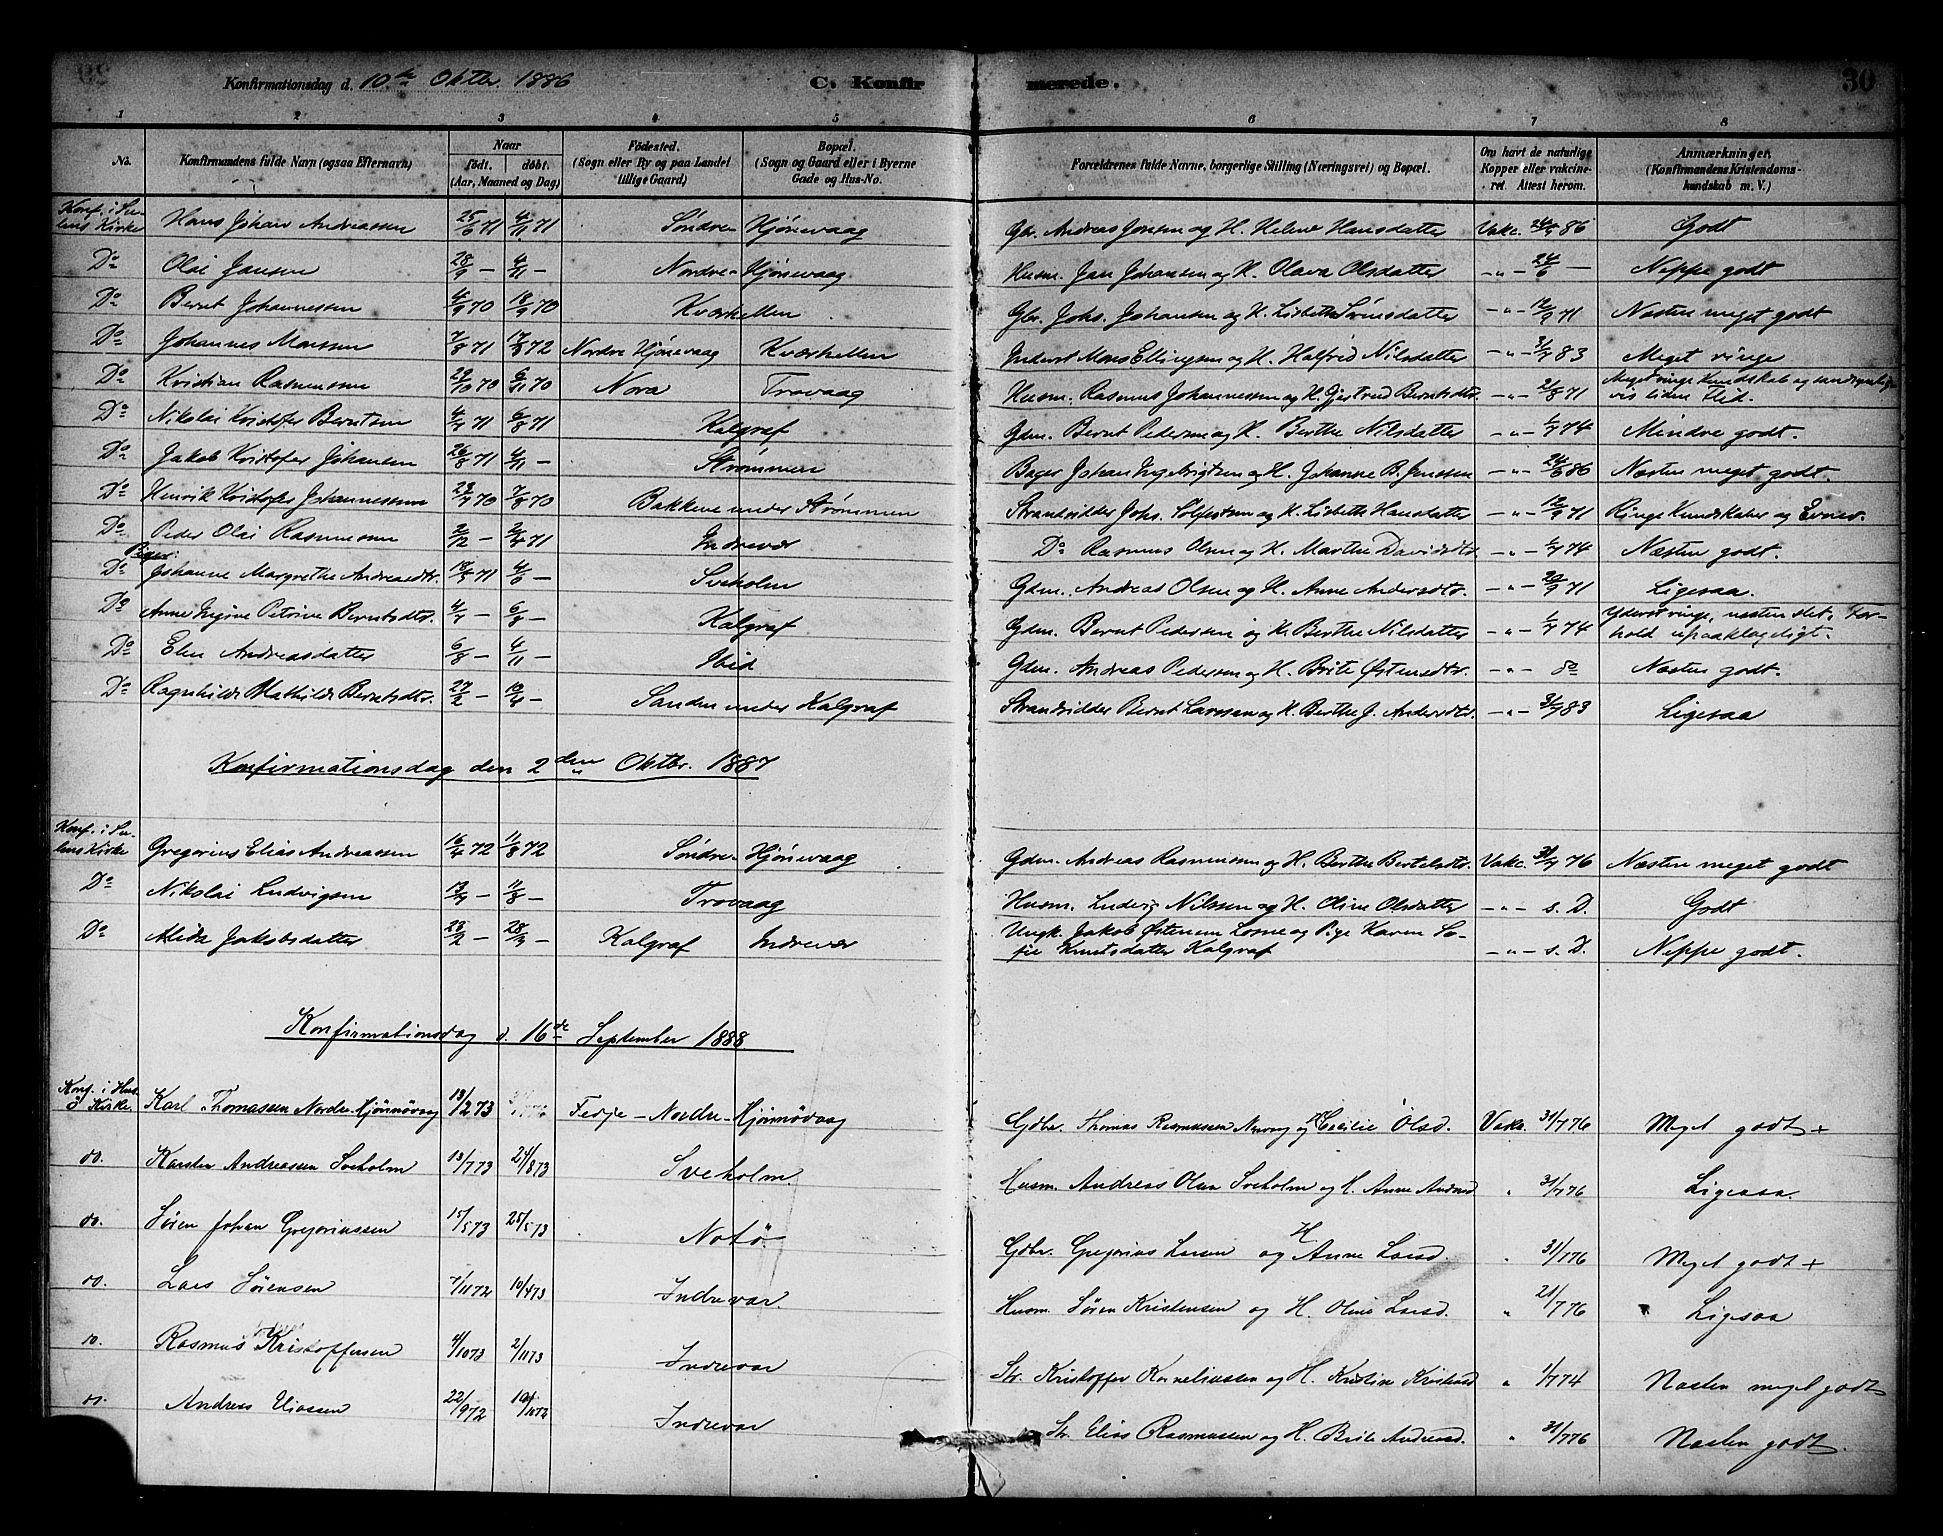 30
Konfirmationsdag d. 10de Oktbr. 1886 C. Konfirmerede.
1 2 3 4 5 6 7 8
No. Konfirmandens fulde Navn (ogsaa Efternavn) Naar født. døbt. (Aar, Maaned og Dag) Fødested. (Sogn eller By og paa Landet tillige Gaard) Bopæl. (Sogn og Gaard eller i Byerne Gade og Hus-No. Forældrenes fulde Navne, borgerlige Stilling (Næringsvei) og Bopæl. Om havt de naturlige Kopper eller vakcineret. Attest herom. Anmærkninger. (Konfirmandens Kristendomskundskab m. V.)
Konf. i Sulens Kirke Hans Johan Andreassen 25/6 71 4/11 71 Søndre Hjønevaag Gbr. Andreas Jonsen og H. Helene Hansdatter Vakc. 86 Godt
Do Olai Jansen 28/9 — 4/11 — Nordre Hjønevaag Husm. Jan Johansen og H. Olava Olsdatter —„— 24/6 — Neppe godt
Do Bernt Johannessen 4/9 70 18/9 70 Kværhellen Gbr. Johs. Johansen og H. Lisbeth Sørensdatter —„— 12/9 71 Næsten meget godt
Do Johannes Monsen 7/8 71 72 Nordre Hjønevaag Kværhellen Inderst Mons Ellingsen og H. Halfrid Nilsdatter —„— 31/7 83 Meget ringe
Do Kristian Rasmussen 29/10 70 6/11 70 Nora Trovaag Husm. Rasmus Johannessen og H. Gjertrud Berntsdtr. —„— 2/8 71 Meget ringe Kundskab og sandsynligvis liden Flid.
Do Nikolai Kristofer Berntsen 4/7 71 6/8 71 Kalgraf Gdm. Bernt Pedersen og H. Berthe Nilsdatter —„— 1/7 74 Mindre godt.
Do Jakob Kristofer Johansen 26/8 71 4/11 — Strømmen Bager Johan Ingebrigtsen og H. Johanne B. Jenssen —„— 24/6 86 Næsten meget godt.
Do Henrik Kristofer Johannessen 23/7 70 7/8 70 Bakkene under Strømmen Strandsidder Johs. Solfestsen og H. Lisbeth Hansdatter —„— 12/9 71 Ringe Kundskaber og Evner.
Do Peder Olai Rasmussen 2/12 — 2/4 71 Indrevær Do Rasmus Olsen og H. Marthe Davidsdtr. —„— 1/7 74 Næsten godt.
Piger:
Do Johanne Margrethe Andreasdtr. 18/5 71 4/6 — Sveholm Gdm. Andreas Olsen og H. Anne Andersdtr. —„— 20/9 71 Ligesaa.
Do Anne Ingine Petrine Berntsdtr. 4/7 — 6/8 — Kalgraf Gdm. Bernt Pedersen og H. Berthe Nilsdatter —„— 1/7 74 Yderst ringe, nesten slet. Forhold upaaklageligt.
Do Elen Andreasdatter 6/8 — 4/11 — Ibid Gdm. Andreas Pedersen og H. Brite Østensdtr. —„— do Næsten godt.
Do Ragnhilde Mathilde Berntsdtr. 27/2 — 10/4 — Sanden under Kalgraf Strandsidder Bernt Larssen og H. Berthe J. Andersdtr. —„— 31/7 83 Ligesaa
Konfirmationsdag den 2den Oktbr. 1887
Konf. i Sulens Kirke Gregorius Elias Andreassen 16/4 72 11/8 72 Søndre Hjønevaag Gdm. Andreas Rasmussen og H. Berthe Bertelsdtr. Vakc. 31/7 76 Næsten meget godt
Do Nikolai Ludvigsen 13/7 — 11/8 — Trovaag Husm. Ludvig Nilssen og H. Oline Olsdatter —„— s. D. Godt
Do Alida Jakobsdatter 20/2 — 28/3 — Kalgraf Indrevær Ungk. Jakob Østensen Losne og Pige Karen Sofie Knutsdatter Kalgraf —„— s. D. Neppe godt.
Konfirmationsdag d. 16de September 1888
Konf. i Husø Kirke. Karl Thomassen Nordre Hjønnøvaag 13/12 73 Fedje — Nordre Hjønnøvaag Gdbr. Thomas Rasmussen og H Cecilie Olsd. Vakc. 31/7 76 Meget godt +
do. Karsten Andreassen Sveholm 13/7 73 24/8 73 Sveholm. Husm. Andreas Olsen Sveholm og H. Anne Andersd „ 31/7 76 Ligesaa.
do. Søren Johan Gregoriussen 15/5 73 25/5 73 Notø Gdbr. Gregorius Larsen og H Anne Larsd. „ 31/7 76 Meget godt +
do. Lars Sørensen 7/11 72 10/4 73 Indrevær. Husm. Søren Kristensen og H. Oline Larsd. „ 21/7 76 Ligesaa
do. Rasmus Kristoffersen 4/10 73 2/11 73 Indrevær Str. Kristoffer Korneliussen og H. Kristine Kristensd „ 1/7 74 Næsten meget godt
do. Andreas Eliassen 22/9 72 Indrevær Str. Elias Rasmussen og H. Brite Andersd. „ 31/7 76 Næsten godt.